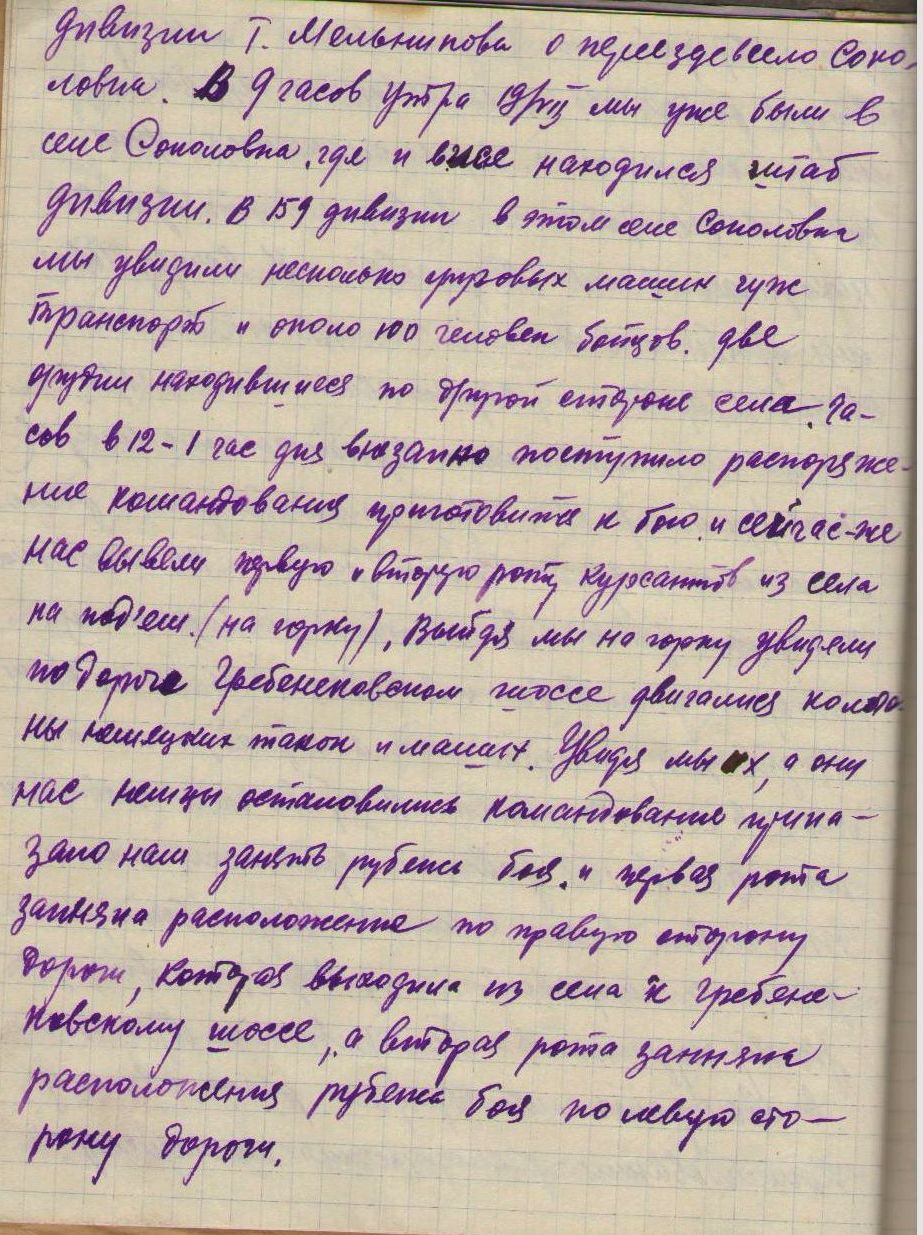 дивизии т. Мельникова о переездевсело Соко-
ловка. В 9 часов утра 19/VII мы уже были в
селе Соколовка, где и выше находился штаб
дивизии. В 159 дивизии в этом селе Соколовка
мы увидили несколько грузовых машин гуж
транспорт и около 100 человек бойцов. две
орудии находившиеся по другой стороне села. Ча-
сов в 12-1 час дня внезапно поступило распоряже-
ние командования приготовится к бою и сейчас-же
нас вывели первую и вторую роту курсантов из села
на под'ем. (на горку), Выйдя мы на горку увидели
по дороге Гребенековском шоссе двигались колон-
ны немецких такок и машин. Увидя мы их, а они
нас немцы остановились командование прика-
зало нам занять рубежи боя. и первая рота
занняла расположение по правую сторону
дороги, которая выходила из села к Гребене-
ковскому шоссе, а вторая рота занняла
расположения рубежа боя по левую сто-
рону дороги.